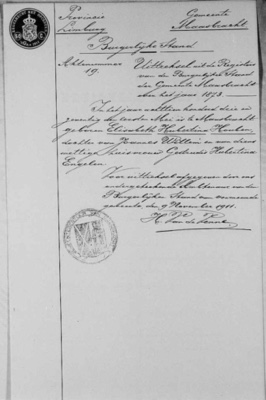 Provincie
Limburg
Gemeente
Maasbracht
Burgerlijke Stand
Aktenummer
19.
Uittreksel uit de Registers
van de Burgerlijke Stand
der Gemeente Maasbracht
over het jaar 1873.
In het jaar achttien honderd drie en
zeventig den eersten Mei is te Maasbracht
geboren Elisabeth Hubertina Houben
dochter van Joannes Willem en van diens
wettige huisvrouw Gertrudis Hubertina
Engelen.
Voor uittreksel afgegeven door ons
ondergeteekende Ambtenaar van den
Burgerlijken Stand van voornoemde
gemeente, den 9 November 1911.
H. Van de